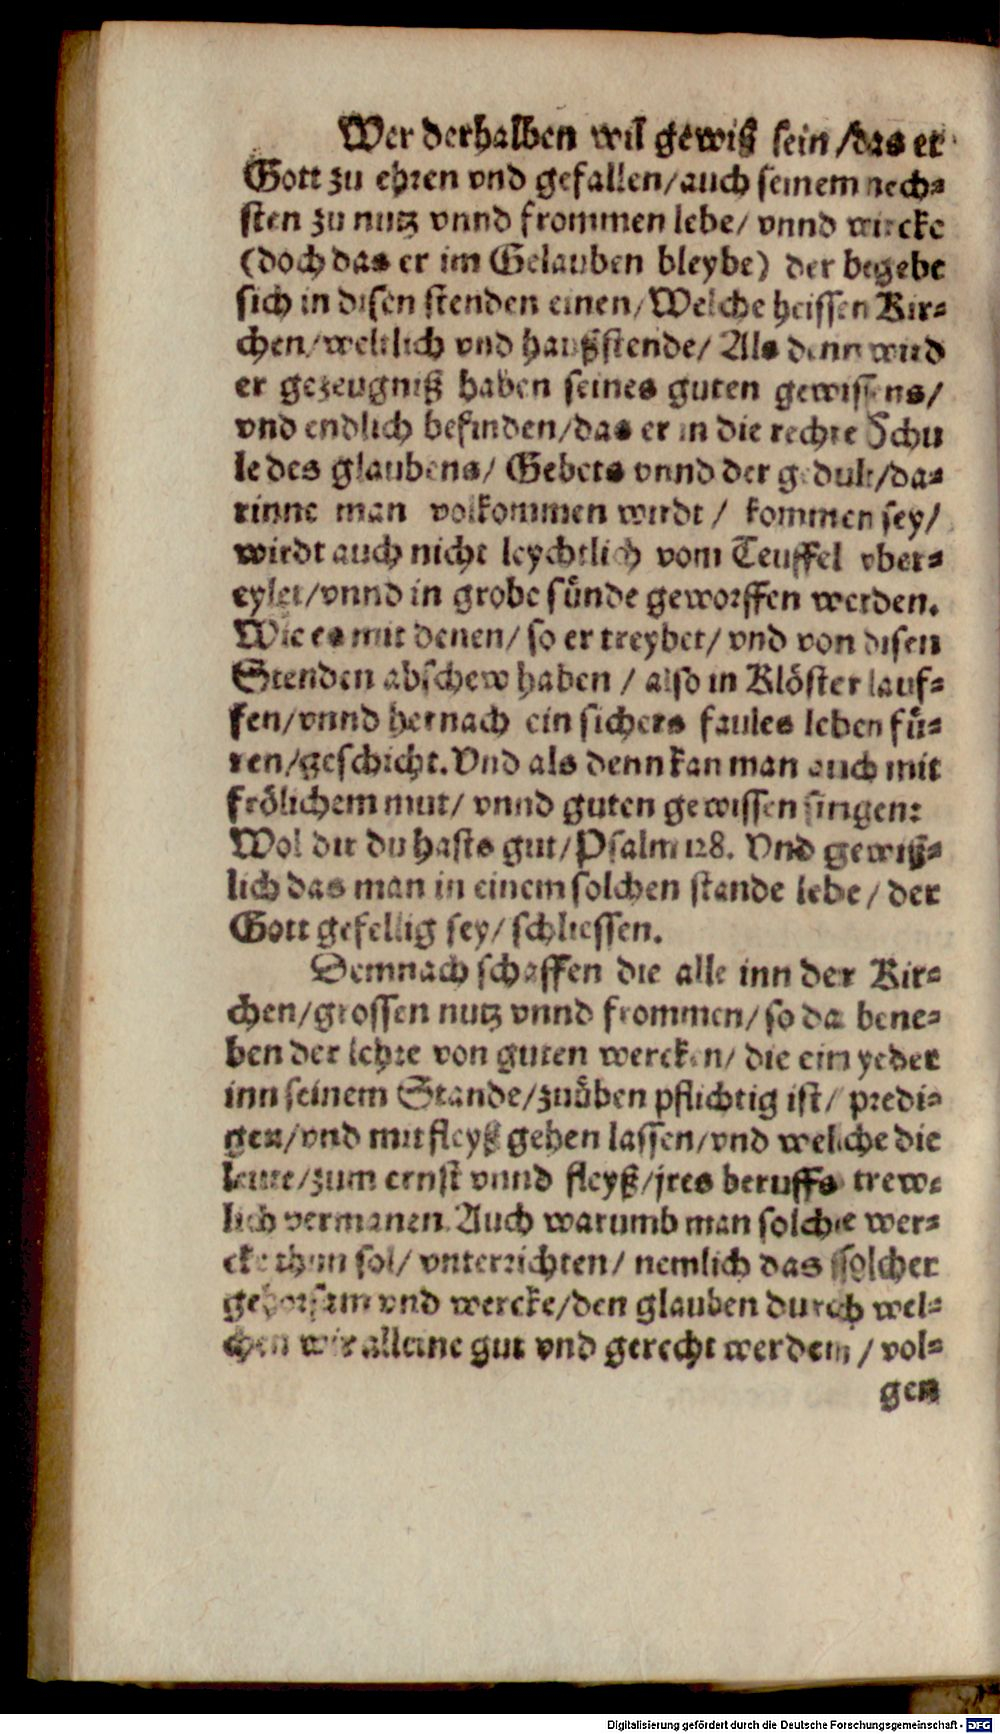 Wer derhalben wil gewiß sein /das er
Gott zu ehren vnd gefallen/auch seinem nech⸗
sten zu nutz vnnd frommen lebe/ vnnd wircke
(doch das er im Gelauben bleybe) der begebe
sich in disen stenden einen/Welche heissen Kir⸗
chen/weltlich vnd haußstende/ Als denn wird
er gezeugniß haben seines guten gewissens/
vnd endlich befinden/das er in die rechte Schu
le des glaubens/ Gebets vnnd der gedult/da⸗
rinne man volkommen wirdt / kommen sey/
wirdt auch nicht leychtlich vom Teuffel vber⸗
eylet/vnnd in grobe sünde geworffen werden.
Wie es mit denen/ so er treybet/ vnd von disen
Stenden abschew haben / also in Klöster lauf⸗
fen/vnnd hernach ein sichers faules leben fü⸗
ren/geschicht. Vnd als denn kan man auch mit
frölichem mut/ vnnd guten gewissen singen:
Wol dir du hasts gut/Psalm 128. Vnd gewiß⸗
lich das man in einem solchen stande lebe/ der
Gott gefellig sey/ schliessen.
Demnach schaffen die alle inn der Kir⸗
chen/grossen nutz vnnd frommen/ so da bene⸗
ben der lehre von guten wercken/ die ein yeder
inn seinem Stande/zuüben pflichtig ist/ predi⸗
gen/vnd mit fleyß gehen lassen/vnd weliche die
leute/zum ernst vnnd fleyß/jres beruffs trew⸗
lich vermanen. Auch warumb man solche wer⸗
cke thun sol/ vnterrichten/ nemlich das solcher
gehorsam vnd wercke/den glauben durch wel⸗
chen wir alleine gut vnd gerecht werden / vol⸗
gen
Digitalisierung gefördert durch die Deutsche Forschungsgemeinschaft - DFG